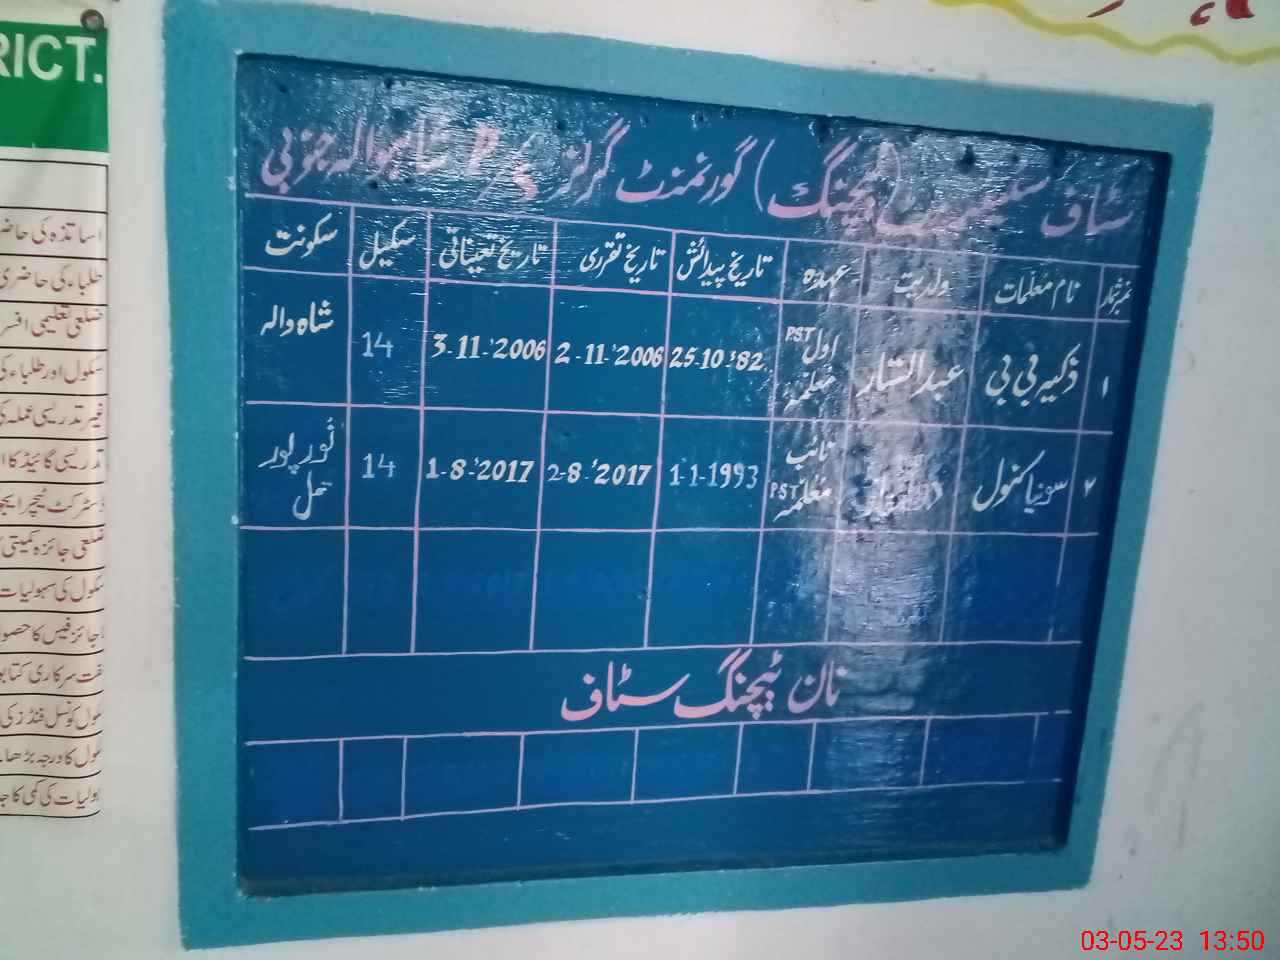 سٹاف سٹیٹمنٹ (ٹیچنگ) گورنمنٹ گرلز P شاہوالہ جنوبی
نمبر شمار نام معلمات ولدیت عہدہ تاریخ پیدائش تاریخ تقرری تاریخ تعیناتی سکیل سکونت
۱ ذکیہ بی بی عبدالستار اول PST معلمہ 25-10-'82 2-11-'2006 3-11-'2006 14 شاہ والہ
۲ سونیا کنول نائب PST معلمہ 1-1-1993 2-8-'2017 1-8-'2017 14 نور پور تھل
نان ٹیچنگ سٹاف
RICT.
اساتذہ کی حاضر
طلباء کی حاضری
ضلعی تعلیمی افسر
سکول اور طلباء کی
غیر تدریسی عملہ کی
تدریسی گائیڈ کا ا
ڈسٹرکٹ ٹیچر ایجو
ضلعی جائزہ کمیٹی
سکول کی سہولیات
جائز فیس کا حصو
مفت سرکاری کتابو
سکول کونسل فنڈز کی
سکول کا درجہ بڑھا
ہولیات کی کمی کا جا
03-05-23 13:50